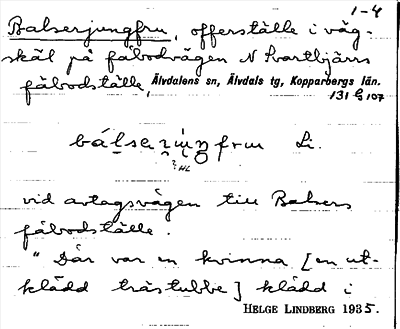 1-4
Balserjungfru, offerställe i väg-
skäl på fäbodvägen N Svartbjörns
fäbodställe, Älvdalens sn, Älvdals tg, Kopparbergs län.
131 G 107
frun Li.
? HL
vid avtagsvägen till Balsers
fäbodställe.
" Där var en kvinna [en ut-
klädd trästubbe] klädd i
HELGE LINDBERG 1935.